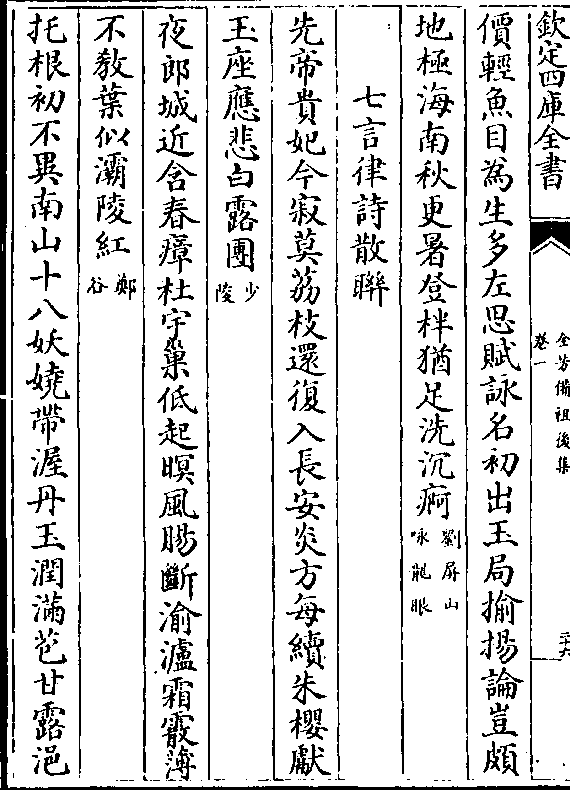 欽定四庫全書
全芳備祖後集
卷一
二十六
價輕魚目為生多左思賦詠名初出玉局揄揚論豈頗
地極海南秋更暑登柈猶足洗沉痾劉屏山咏龍眼
七言律詩散聯
先帝貴妃今寂莫荔枝還復入長安炎方每續朱櫻獻
玉座應悲白露團少陵
夜郎城近含春瘴杜宇巢低起暝風腸斷渝瀘霜霰薄
不教葉似灞陵紅鄭谷
托根初不異南山十八妖嬈帶渥丹玉潤滿苞甘露浥